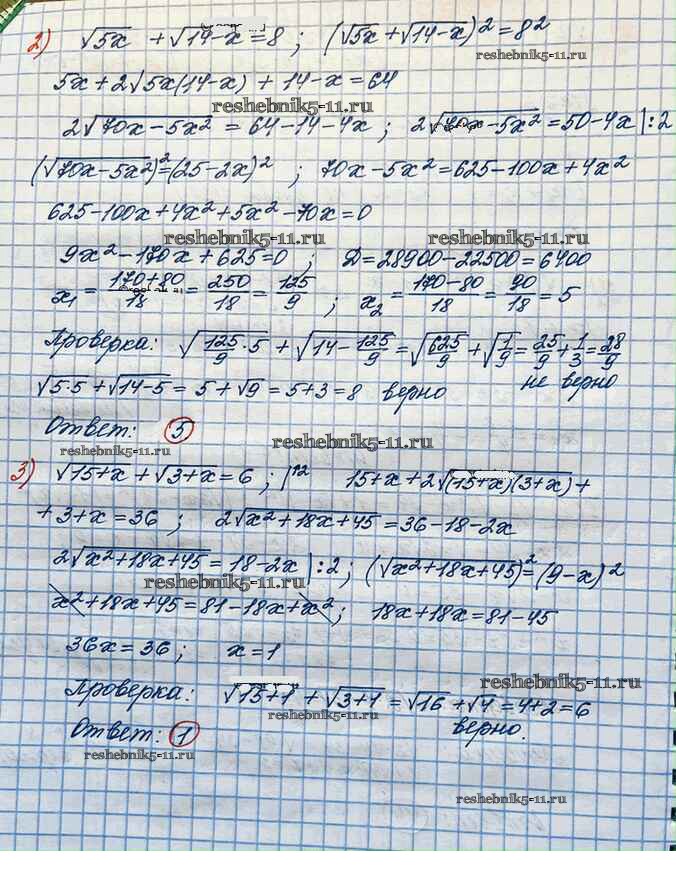 2) √5x + √14-x = 8 ; (√5x + √14-x)² = 8²
reshebnik5-11.ru
5x + 2√5x(14-x) + 14-x = 64
reshebnik5-11.ru
2√70x-5x² = 64-14-4x ; 2√70x-5x² = 50-4x |:2
(√70x-5x²)² = (25-2x)² ; 70x-5x² = 625-100x+4x²
625-100x+4x²+5x²-70x=0
reshebnik5-11.ru reshebnik5-11.ru
9x²-170x+625=0 ; D=28900-22500=6400
x₁ = (170+80)/18 = 250/18 = 125/9 ; x₂ = (170-80)/18 = 90/18 = 5
Проверка: √125/9·5 + √14-125/9 = √625/9 + √1/9 = 25/9 + 1/3 = 28/9
не верно
√5·5 + √14-5 = 5+√9 = 5+3 = 8 верно
Ответ: 5
reshebnik5-11.ru
reshebnik5-11.ru
3) √15+x + √3+x = 6 ; |² 15+x+2√(15+x)(3+x) +
+3+x=36 ; 2√x²+18x+45 = 36-18-2x
2√x²+18x+45 = 18-2x |:2 ; (√x²+18x+45)² = (9-x)²
reshebnik5-11.ru
x²+18x+45=81-18x+x² ; 18x+18x=81-45
36x=36 ; x=1
reshebnik5-11.ru
Проверка: √15+1 + √3+1 = √16 + √4 = 4+2=6
верно.
Ответ: 1
reshebnik5-11.ru
reshebnik5-11.ru